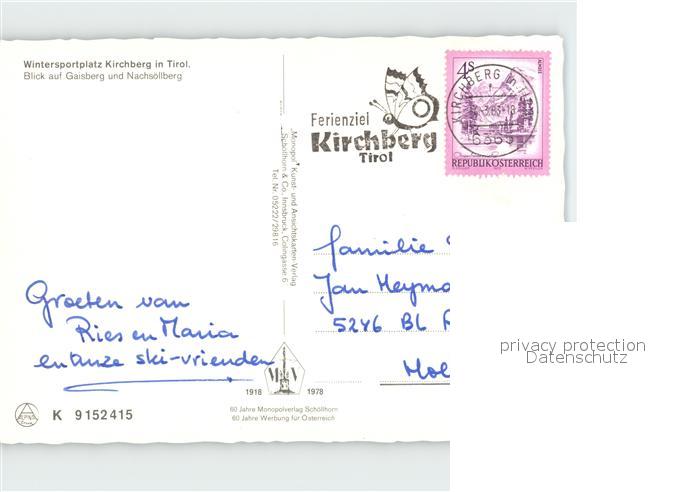 Wintersportplatz Kirchberg in Tirol.
Blick auf Gaisberg und Nachsöllberg
Ferienziel
Kirchberg
Tirol
KIRCHBERG in
6365
4s
REPUBLIK ÖSTERREICH
„Monopol" Kunst- und Ansichtskarten-Verlag
Schöllhorn & Co., Innsbruck, Colingasse 6
Tel. Nr. 05222/29816
Groeten van
Ries en Maria
en anze ski-vrienden
familie
Jan Heyma
5246 BL
Hol
privacy protection
Datenschutz
1918 1978
60 Jahre Monopolverlag Schöllhorn
60 Jahre Werbung für Österreich
K 9152415